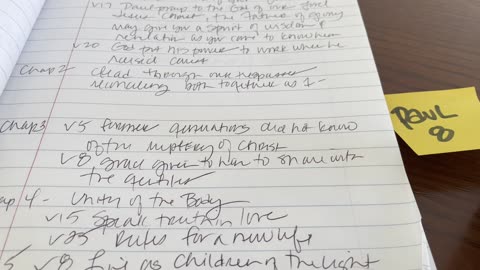 v17 Paul prays to the God of our Lord
Jesus Christ, the Father of glory
may give you a spirit of wisdom
revelation as you come to know him
v20 God put his power to work when he
raised Christ
Chap 2 dead through our trespasses
reconciling both together as 1 -
Chap 3 v5 former generations did not know
of the mystery of Christ
v8 grace given to him to share with
the gentiles
ap 4 - Unity of the Body
v15 Speak truth in love
v23 Rules for a new life
5 v8 Live as children of the light
PAUL
8